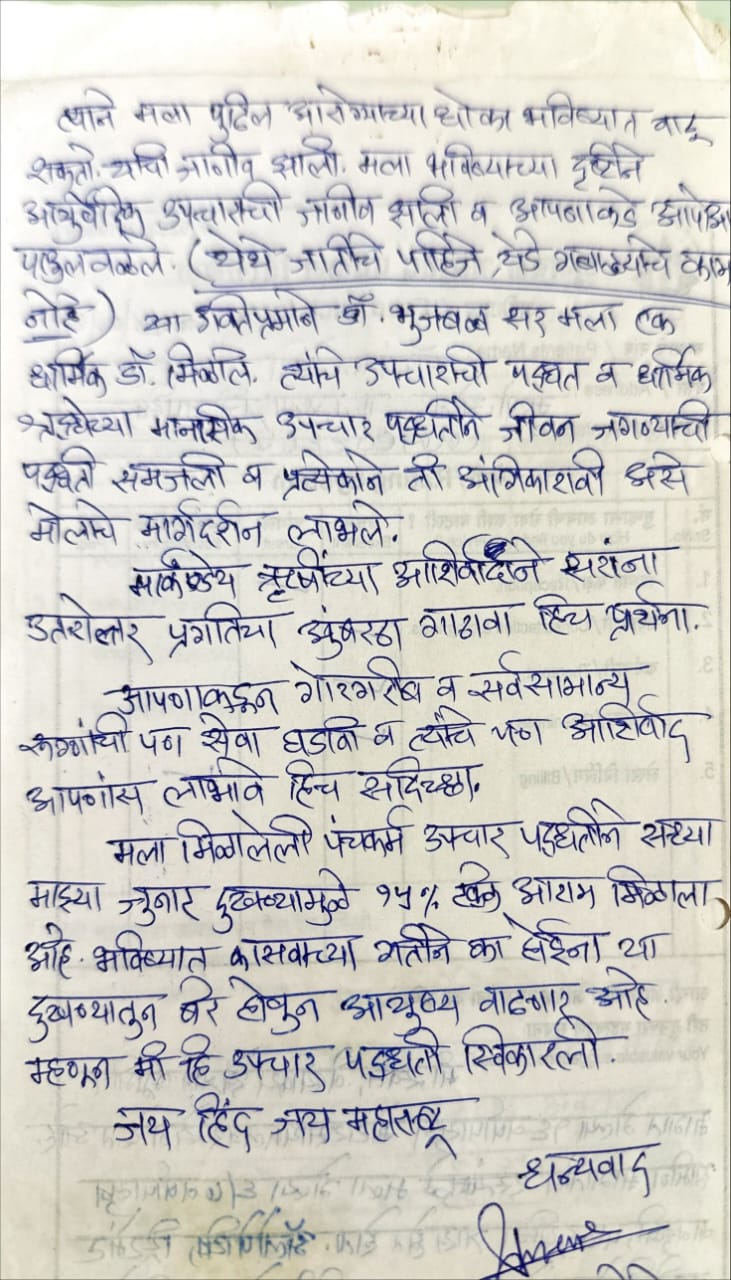 त्याने मला पुढिल आरोग्याच्या धोका भविष्यात वाढू
शकतो. याची जाणीव झाली. मला भविष्याच्या दृष्टीने
आयुर्वेदिक उपचाराची जाणीव झाली व आपणाकडे आपोआप
पाऊलवळले. (येथे जातीचे पाहिजे, येडे गबाळ्याचे काम
नोहे) या उक्तिप्रमाने डॉ. भुजबळ सर मला एक
धार्मिक डॉ. मिळाले. त्यांचे उपचाराची पध्दत व धार्मिक
श्रध्देच्या मानसिक उपचार पध्दतीने जीवन जगण्याची
पध्दती समजली व प्रत्येकाने ती अंगिकारावी असे
मोलाचे मार्गदर्शन लाभले.
मार्कण्डेय ऋषींच्या आशिर्वादाने सरांना
उत्तरोत्तर प्रगतिचा उंबरठा गाठावा हिच प्रार्थना.
आपणाकडून गोरगरीब व सर्वसामान्य
रूग्णांची पण सेवा घडावी व त्यांचे पण आशिर्वाद
आपणांस लाभावे हिच सदिच्छा.
मला मिळालेली पंचकर्म उपचार पध्दतीने सध्या
माझ्या जुनाट दुखण्यामुळे १५% आराम मिळाला
आहे. भविष्यात कासवाच्या गतीने का होईना या
दुखण्यातुन बरे होवुन आयुष्य वाढणार आहे.
म्हणून मी हि उपचार पध्दती स्विकारली.
जय हिंद जय महाराष्ट्र
धन्यवाद